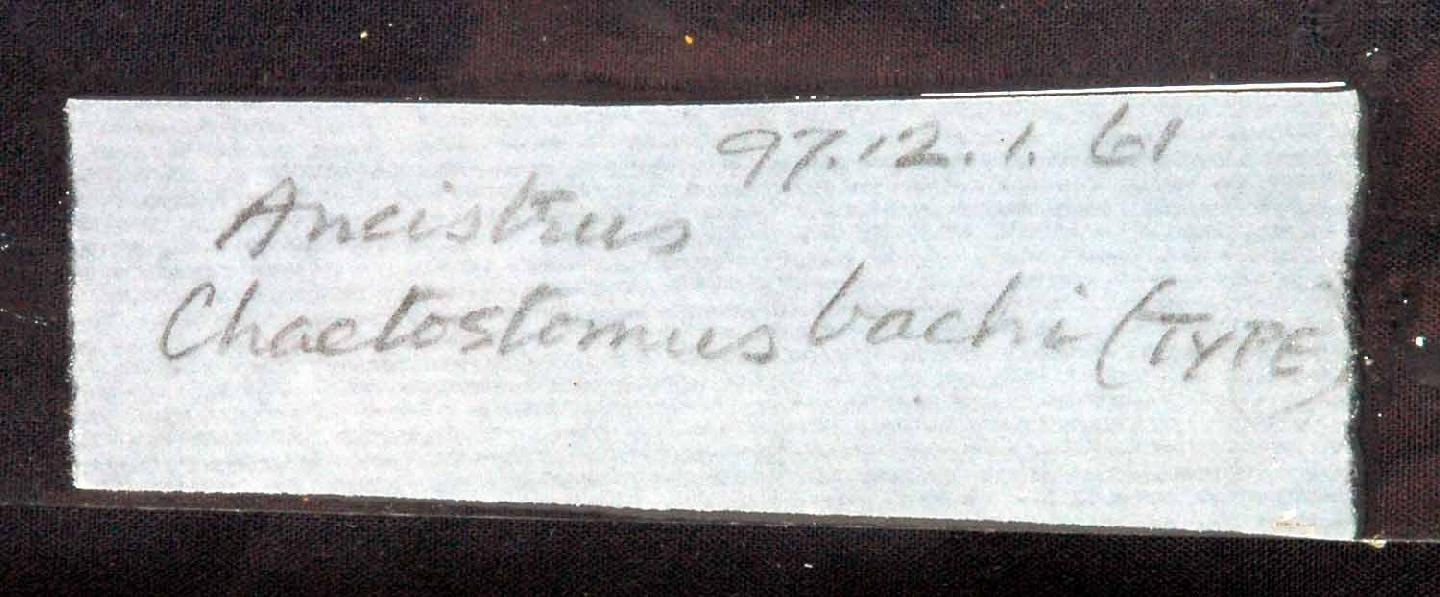 97.12.1.61
Ancistrus
Chaetostomus bachi (TYPE)